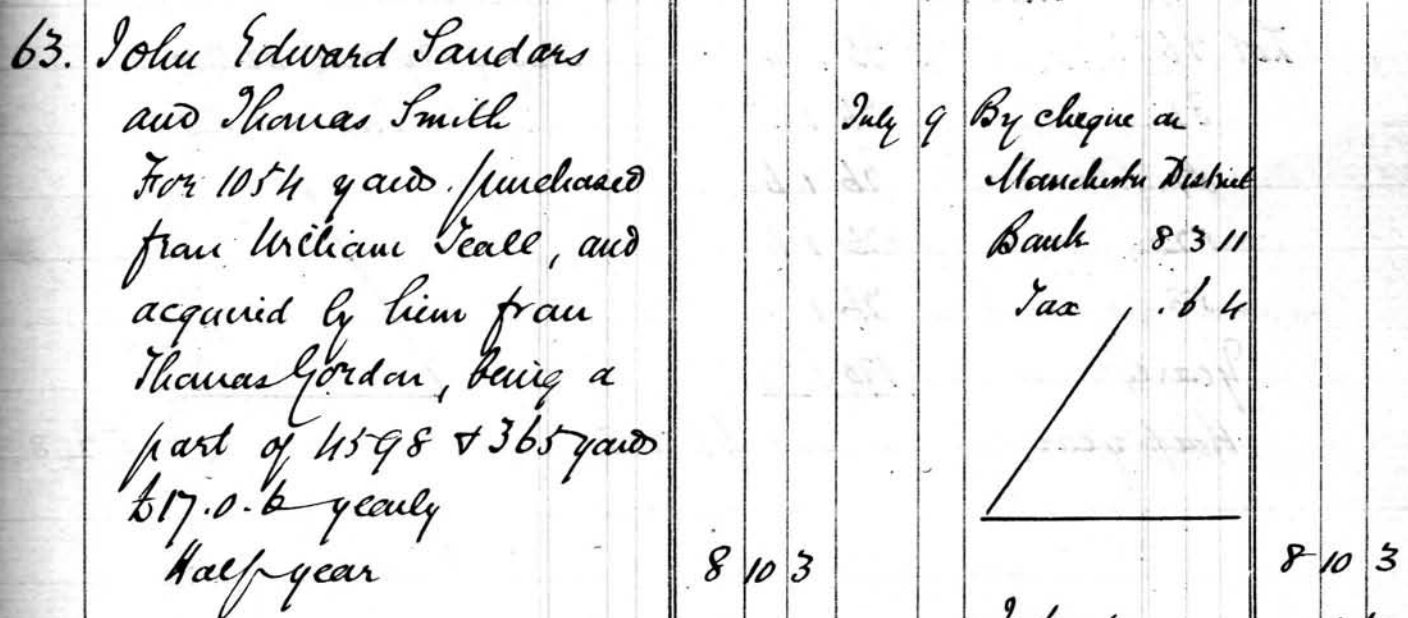 63. John Edward Sandars
and Thomas Smith
For 1054 yards purchased
from William Teall, and
acquired by him from
Thomas Gordon, being a
part of 4598 & 365 yards
£17.0.6 yearly
Half year 8 10 3
July 9 By cheque on
Manchester District
Bank 8 3 11
Tax . 6 4
8 10 3